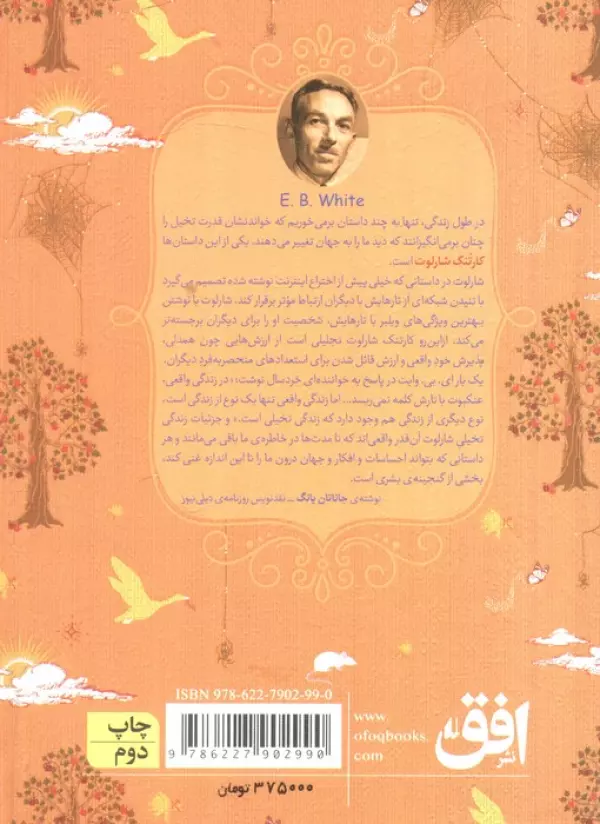 E. B. White
در طول زندگی، تنها به چند داستان برمی‌خوریم که خواندنشان قدرت تخیل را
چنان برمی‌انگیزانند که دید ما را به جهان تغییر می‌دهند. یکی از این داستان‌ها
کارتنک شارلوت است.
شارلوت در داستانی که خیلی پیش از اختراع اینترنت نوشته شده تصمیم می‌گیرد
با تنیدن شبکه‌ای از تارهایش با دیگران ارتباط مؤثر برقرار کند. شارلوت با نوشتن
بهترین ویژگی‌های ویلبر با تارهایش، شخصیت او را برای دیگران برجسته‌تر
می‌کند، ازاین‌رو کارتنک شارلوت تجلیلی است از ارزش‌هایی چون همدلی،
پذیرش خود واقعی و ارزش قائل شدن برای استعدادهای منحصربه‌فردِ دیگران.
یک بار ای. بی. وایت در پاسخ به خواننده‌ای خردسال نوشت: «در زندگی واقعی،
عنکبوت با تارش کلمه نمی‌ریسد... اما زندگی واقعی تنها یک نوع از زندگی است.
نوع دیگری از زندگی هم وجود دارد که زندگی تخیلی است.» و جزئیات زندگی
تخیلی شارلوت آن‌قدر واقعی‌اند که تا مدت‌ها در خاطره‌ی ما باقی می‌مانند و هر
داستانی که بتواند احساسات و افکار و جهان درون ما را تا این اندازه غنی کند،
بخشی از گنجینه‌ی بشری است.
نوشته‌ی جاناتان یانگ ــ نقدنویس روزنامه‌ی دیلی‌نیوز
ISBN 978-622-7902-99-0
9 786227 902990
چاپ
دوم
۳۷۵۰۰۰ تومان
www.
ofoqbooks.
com
نشر افق